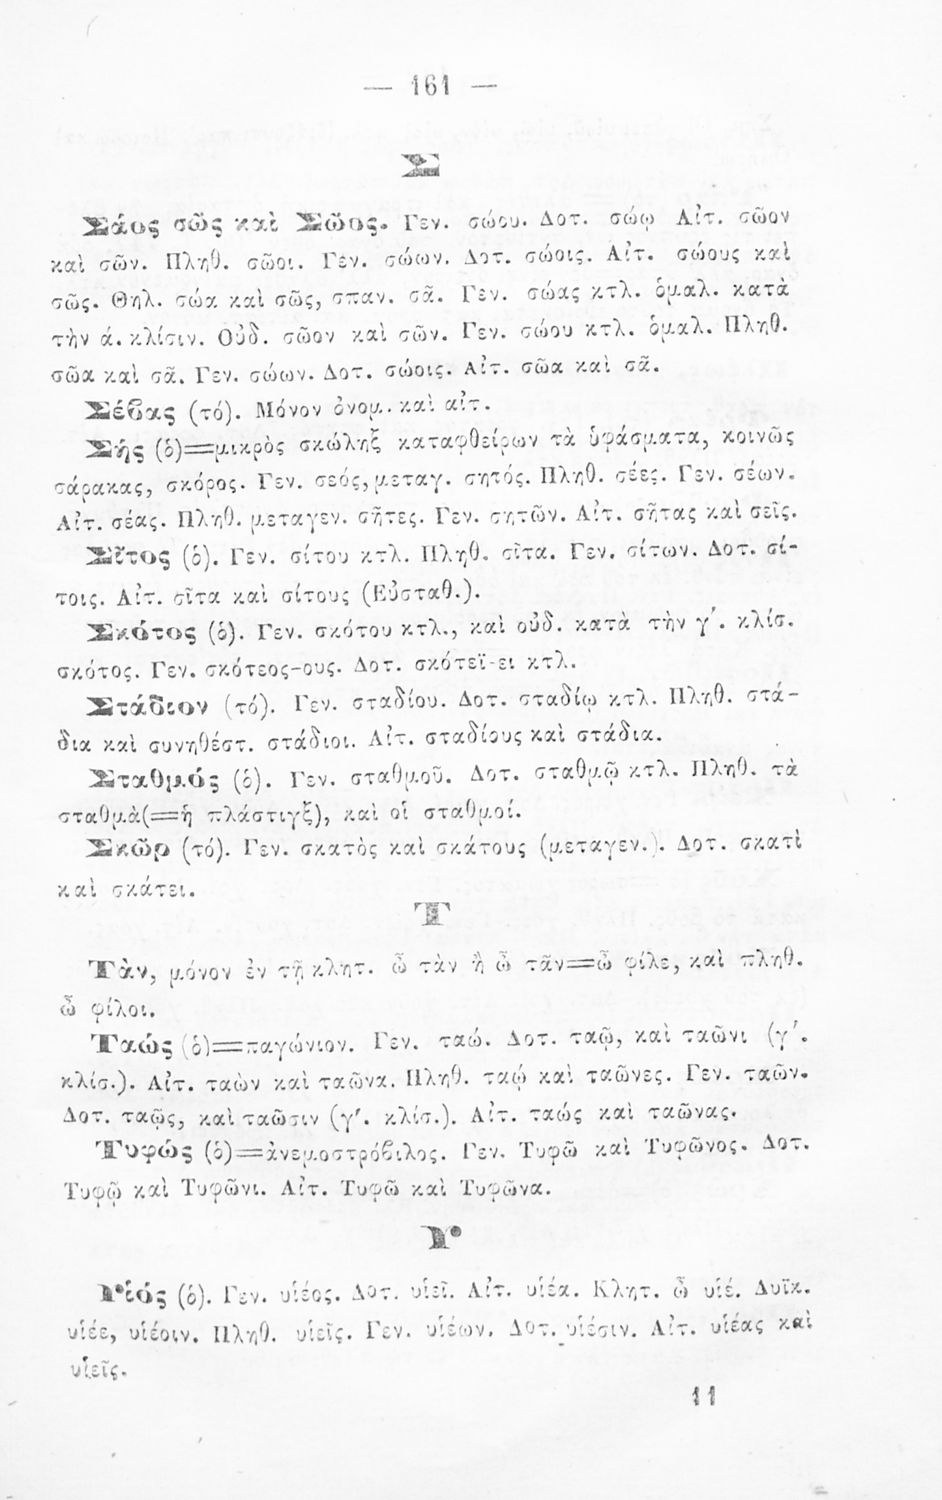 — 161 —
Σ
Σάος σῶς καὶ Σῶος. Γεν. σώου. Δοτ. σώῳ Αἰτ. σῶον
καὶ σῶν. Πληθ. σῶοι. Γεν. σώων. Δοτ. σώοις. Αἰτ. σώους καὶ
σῶς. Θηλ. σώα καὶ σῶς, σπαν. σᾶ. Γεν. σώας κτλ. ὁμαλ. κατὰ
τὴν ά. κλίσιν. Οὐδ. σῶον καὶ σῶν. Γεν. σώου κτλ. ὁμαλ. Πληθ.
σῶα καὶ σᾶ. Γεν. σώων. Δοτ. σώοις. Αἰτ. σῶα καὶ σᾶ.
Σέβας (τό). Μόνον ὀνομ. καὶ αἰτ.
Σής (ὁ)=μικρὸς σκώληξ καταφθείρων τὰ ὑφάσματα, κοινῶς
σάρακας, σκόρος. Γεν. σεός, μεταγ. σητός. Πληθ. σέες. Γεν. σέων.
Αἰτ. σέας. Πληθ. μεταγεν. σῆτες. Γεν. σητῶν. Αἰτ. σῆτας καὶ σεῖς.
Σῖτος (ὁ). Γεν. σίτου κτλ. Πληθ. σῖτα. Γεν. σίτων. Δοτ. σί-
τοις. Αἰτ. σῖτα καὶ σίτους (Εὐσταθ.).
Σκότος (ὁ). Γεν. σκότου κτλ., καὶ οὐδ. κατὰ τὴν γ΄. κλίσ.
σκότος. Γεν. σκότεος-ους. Δοτ. σκότεϊ-ει κτλ.
Στάδιον (τό). Γεν. σταδίου. Δοτ. σταδίῳ κτλ. Πληθ. στά-
δια καὶ συνηθέστ. στάδιοι. Αἰτ. σταδίους καὶ στάδια.
Σταθμός (ὁ). Γεν. σταθμοῦ. Δοτ. σταθμῷ κτλ. Πληθ. τὰ
σταθμὰ(=ἡ πλάστιγξ), καὶ οἱ σταθμοί.
Σκῶρ (τό). Γεν. σκατὸς καὶ σκάτους (μεταγεν.). Δοτ. σκατὶ
καὶ σκάτει.
Τ
Τὰν, μόνον ἐν τῇ κλητ. ὦ τὰν ἢ ὦ τᾶν=ὦ φίλε, καὶ πληθ.
ὦ φίλοι.
Ταώς (ὁ)=παγώνιον. Γεν. ταώ. Δοτ. ταῷ, καὶ ταῶνι (γ΄.
κλίσ.). Αἰτ. ταὼν καὶ ταῶνα. Πληθ. ταῴ καὶ ταῶνες. Γεν. ταῶν.
Δοτ. ταῷς, καὶ ταῶσιν (γ΄. κλίσ.). Αἰτ. ταώς καὶ ταῶνας.
Τυφώς (ὁ)=ἀνεμοστρόβιλος. Γεν. Τυφῶ καὶ Τυφῶνος. Δοτ.
Τυφῷ καὶ Τυφῶνι. Αἰτ. Τυφῶ καὶ Τυφῶνα.
Υ
Υἱός (ὁ). Γεν. υἱέος. Δοτ. υἱεῖ. Αἰτ. υἱέα. Κλητ. ὦ υἱέ. Δυϊκ.
υἱέε, υἱέοιν. Πληθ. υἱεῖς. Γεν. υἱέων. Δοτ. υἱέσιν. Αἰτ. υἱέας καὶ
υἱεῖς.
11